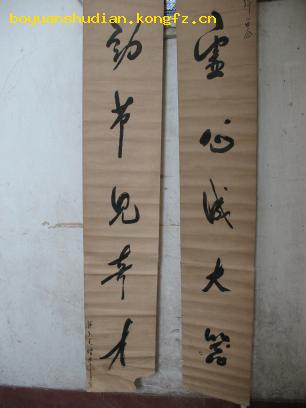 boyuanshudian.kongfz.cn
虚心成大器
劲节见奇才